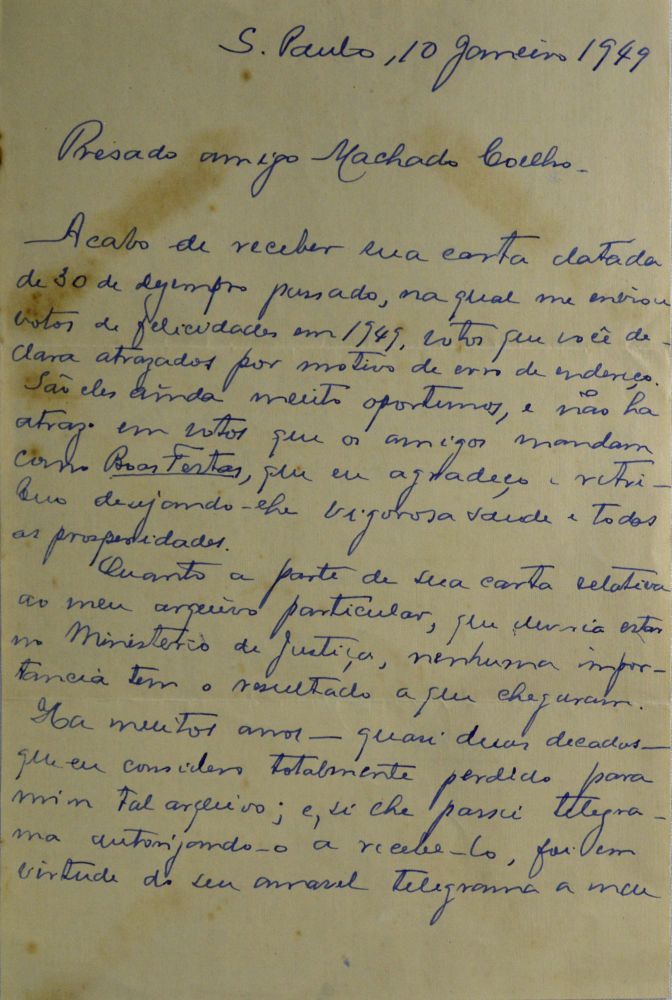 S. Paulo, 10 Janeiro 1949
Presado amigo Machado Coelho.
Acabo de receber sua carta datada
de 30 de dezembro passado, na qual me enviou
votos de felicidades em 1949, votos que você de-
clara atrazados por motivo de erro de endereço.
São eles ainda muito oportunos, e não ha
atrazo em votos que os amigos mandam
como Boas Festas, que eu agradeço e retri-
buo desejando-lhe vigorosa saude e todas
as prosperidades.
Quanto a parte de sua carta relativa
ao meu arquivo particular, que devria estar
no Ministerio da Justiça, nenhuma impor-
tancia tem o resultado a que chegaram.
Ha muitos anos — quasi duas decadas —
que eu considero totalmente perdido para
mim tal arquivo; e, si lhe passei telegra-
ma autorizando-o a recebe-lo, foi em
virtude do seu amavel telegrama a meu